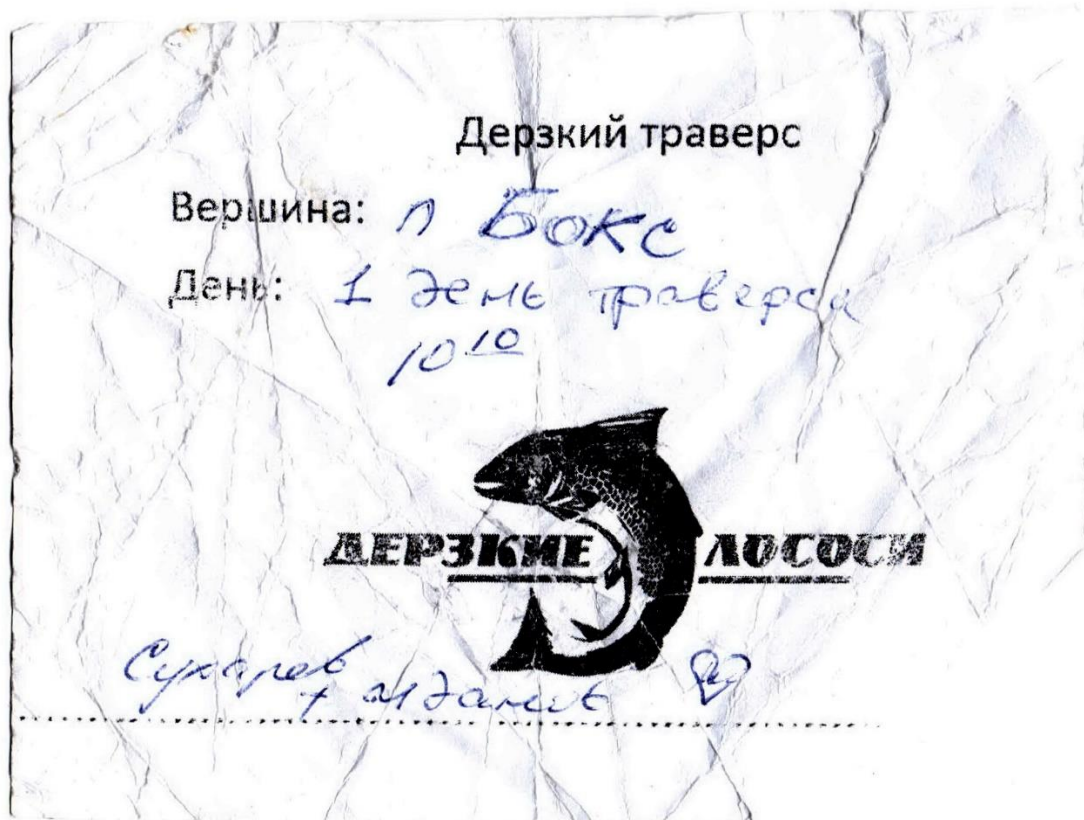 Дерзкий траверс
Вершина: п Бокс
День: 1 день траверса
10 10
ДЕРЗКИЕ ЛОСОСИ
Сухарев
+